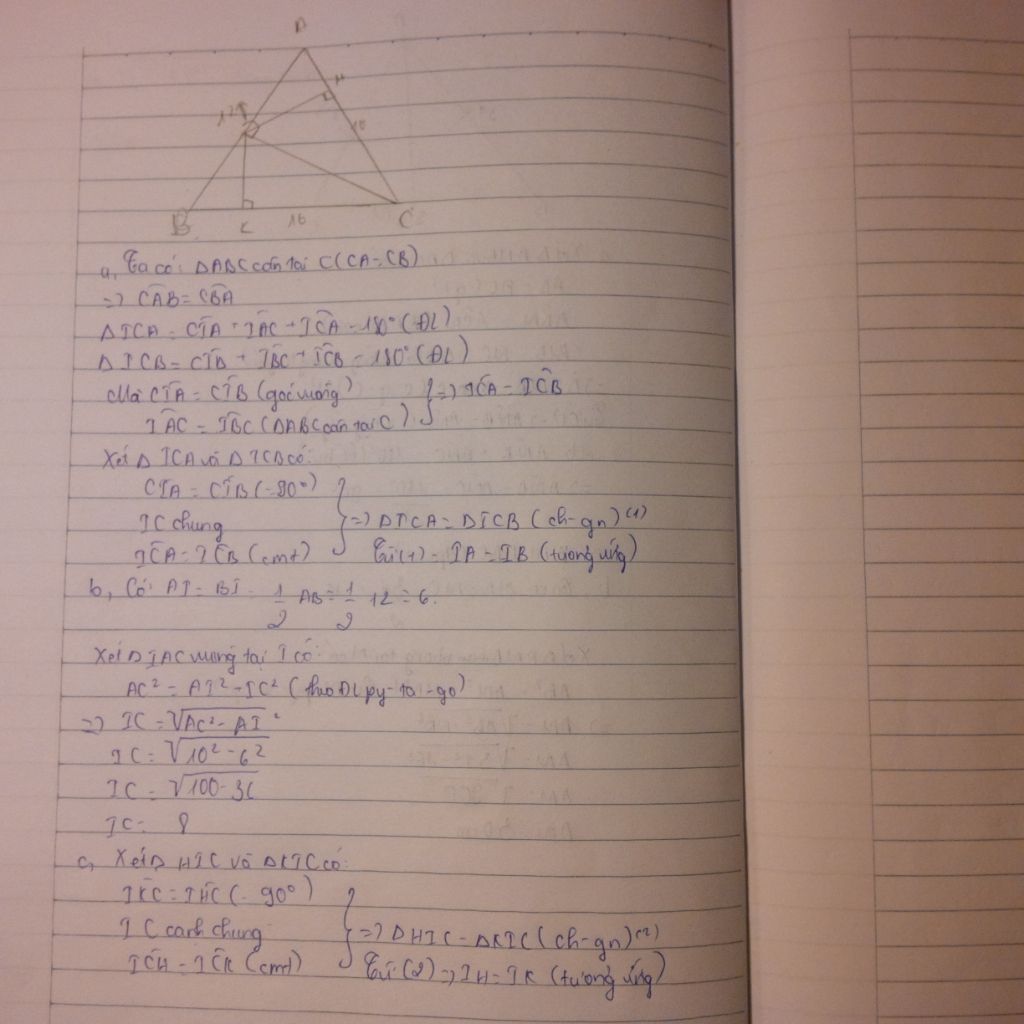 A
H
12
I
10
B
K
10
C
a, Ta có: ΔABC cân tại C (CA = CB)
=> CÂB = CB̂A
ΔICA = CÎA + IÂC + IĈA = 180° (ĐL)
ΔICB = CÎB + IB̂C + IĈB = 180° (ĐL)
Mà CÎA = CÎB (góc vuông) } => IĈA = IĈB
IÂC = IB̂C (ΔABC cân tại C)
Xét ΔICA và ΔICB có:
CÎA = CÎB (= 90°)
IC chung } => ΔICA = ΔICB (ch-gn) (1)
IĈA = IĈB (cmt) Từ (1) = IA = IB (tương ứng)
b, Có: AI = BI = 1/2 AB = 1/2 12 = 6.
Xét ΔIAC vuông tại I có:
AC² = AI² + IC² (theo ĐL py-ta-go)
=> IC = √AC² - AI²
IC = √10² - 6²
IC = √100 - 36
IC = 8
c, Xét Δ HIC và ΔKIC có:
IK̂C = IĤC (= 90°)
IC cạnh chung } => ΔHIC = ΔKIC (ch-gn) (2)
IĈH = IĈK (cmt) Từ (2) => IH = IK (tương ứng)